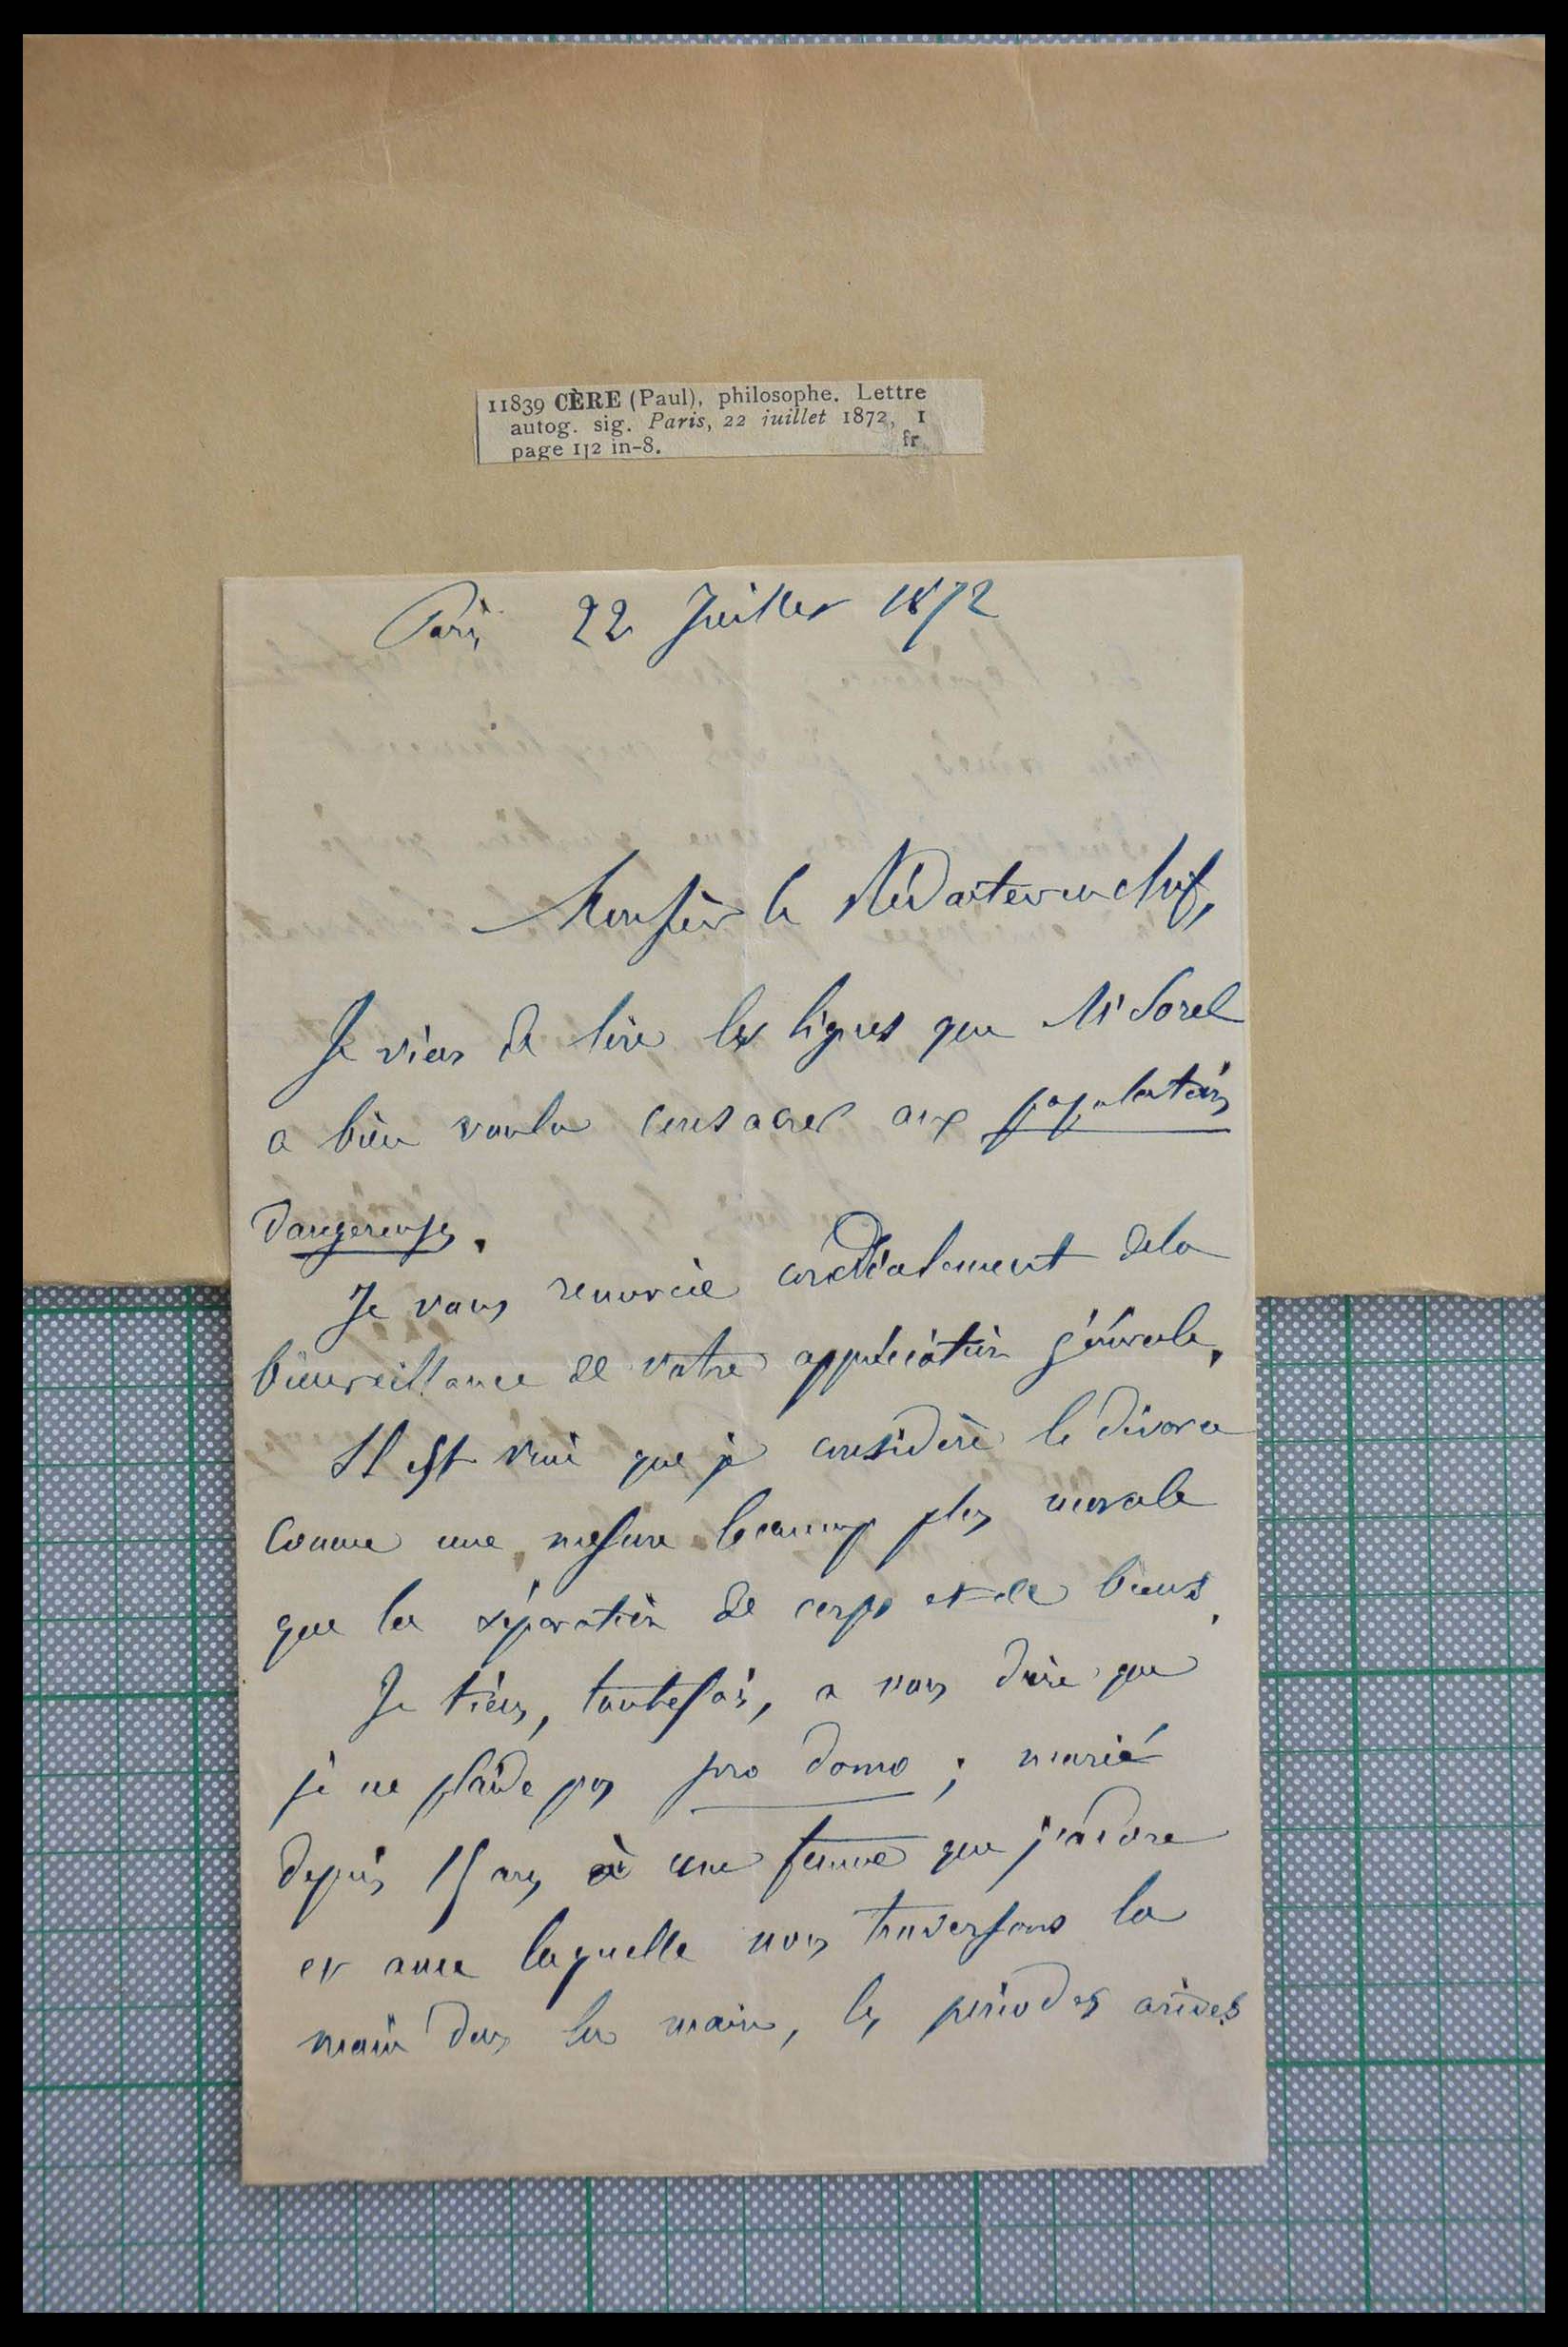 11839 CÈRE (Paul), philosophe. Lettre
autog. sig. Paris, 22 juillet 1872, 1
page 1|2 in-8. fr.
Paris 22 Juillet 1872
Monsieur le Rédacteur en chef,
Je viens de lire les lignes que Mr Sorel
a bien voulu consacrer aux populations
dangereuses.
Je vous remercie cordialement de la
bienveillance de votre appréciation générale.
Il est vrai que je considère le divorce
comme une mesure beaucoup plus morale
que la séparation de corps et de biens.
Je tiens, toutefois, a vous dire que
je ne plaide pas pro domo ; marié
depuis 15 ans à une femme que j'adore
et avec laquelle nous traversons la
main dans la main, les périodes arides